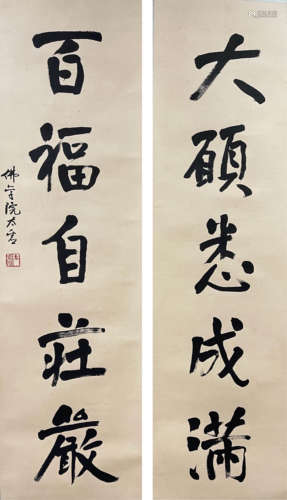 大願悉成滿
百福自莊嚴
佛學院太虛